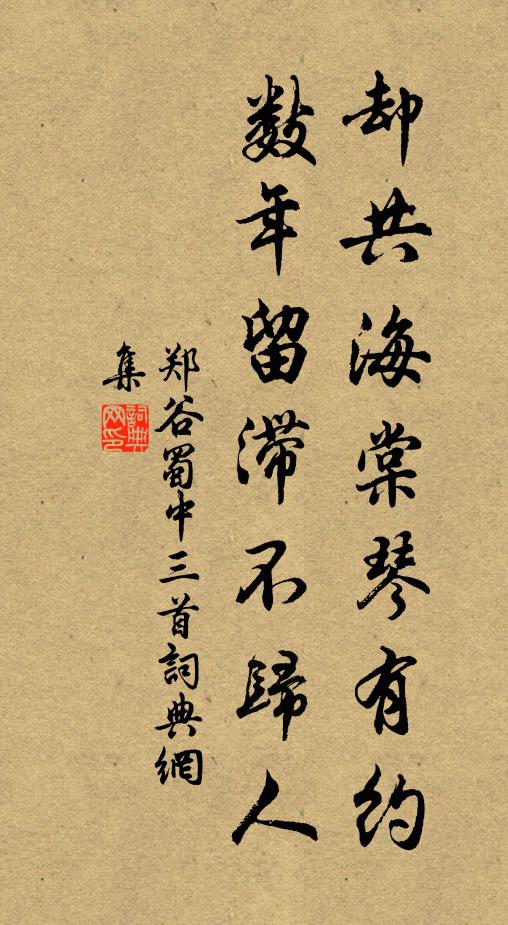 却共海棠琴有约
数年留滞不歸人
郑谷蜀中三首詞典網
集
詞典网印